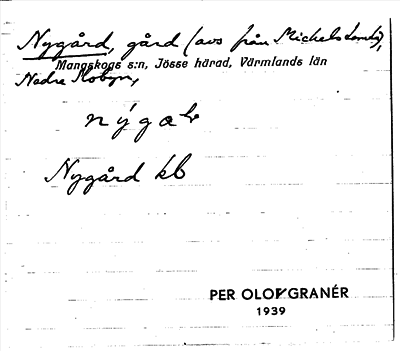 Nygård, gård (avs från Michelstomta),
Mangskogs s:n, Jösse härad, Värmlands län
Nedre Mobyn,
nýgaḷ
Nygård kb
PER OLOV GRANÉR
1939